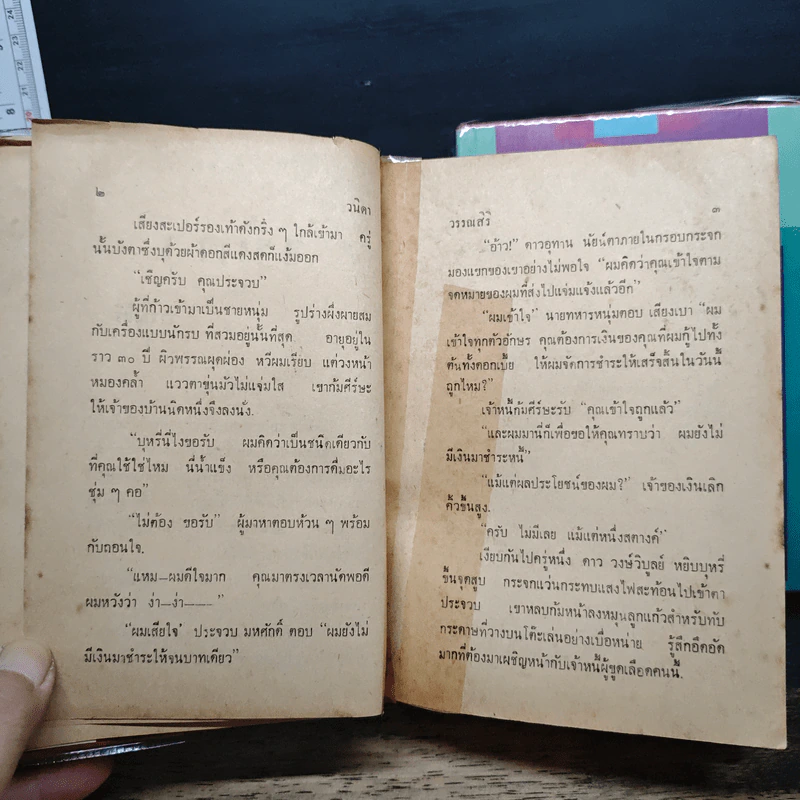 ๒
วนิดา
เสียงสะเปอร์รองเท้าดังกริ่ง ๆ ใกล้เข้ามา ครู่
นั้นบังตาซึ่งบุด้วยผ้าดอกสีแดงสดก็แง้มออก
“เชิญครับ คุณประจวบ”
ผู้ที่ก้าวเข้ามาเป็นชายหนุ่ม รูปร่างผึ่งผายสม
กับเครื่องแบบนักรบ ที่สวมอยู่นั้นที่สุด อายุอยู่ใน
ราว ๓๐ ปี ผิวพรรณผุดผ่อง หวีผมเรียบ แต่วงหน้า
หมองคล้ำ แววตาขุ่นมัวไม่แจ่มใส เขาก้มศีร์ษะ
ให้เจ้าของบ้านนิดหนึ่งจึงลงนั่ง.
“บุหรี่นี่ไงขอรับ ผมคิดว่าเป็นชนิดเดียวกับ
ที่คุณใช้ใช่ไหม นี่น้ำแข็ง หรือคุณต้องการดื่มอะไร
ชุ่ม ๆ คอ”
“ไม่ต้อง ขอรับ” ผู้มาหาตอบห้วน ๆ พร้อม
กับถอนใจ.
“แหม—ผมดีใจมาก คุณมาตรงเวลานัดพอดี
ผมหวังว่า ง่า—ง่า———”
“ผมเสียใจ’ ประจวบ มหศักดิ์ ตอบ “ผมยังไม่
มีเงินมาชำระให้จนบาทเดียว”
วรรณสิริ
๓
“อ้าว!” ดาวอุทาน นัยน์ตาภายในกรอบกระจก
มองแขกของเขาอย่างไม่พอใจ “ผมคิดว่าคุณเข้าใจตาม
จดหมายของผมที่ส่งไปแจ่มแจ้งแล้วอีก”
“ผมเข้าใจ” นายทหารหนุ่มตอบ เสียงเบา “ผม
เข้าใจทุกตัวอักษร คุณต้องการเงินของคุณที่ผมกู้ไปทั้ง
ต้นทั้งดอกเบี้ย ให้ผมจัดการชำระให้เสร็จสิ้นในวันนี้
ถูกไหม?”
เจ้าหนี้ก้มศีร์ษะรับ “คุณเข้าใจถูกแล้ว”
“และผมมานี่ก็เพื่อขอให้คุณทราบว่า ผมยังไม่
มีเงินมาชำระหนี้”
“แม้แต่ผลประโยชน์ของผม?” เจ้าของเงินเลิก
คิ้วขึ้นสูง.
“ครับ ไม่มีเลย แม้แต่หนึ่งสตางค์”
เงียบกันไปครู่หนึ่ง ดาว วงษ์วิบูลย์ หยิบบุหรี่
ขึ้นจุดสูบ กระจกแว่นกระทบแสงไฟสะท้อนไปเข้าตา
ประจวบ เขาหลบก้มหน้าลงหมุนลูกแก้วสำหรับทับ
กระดาษที่วางบนโต๊ะเล่นอย่างเบื่อหน่าย รู้สึกอึดอัด
มากที่ต้องมาเผชิญหน้ากับเจ้าหนี้ผู้ขูดเลือดคนนี้.